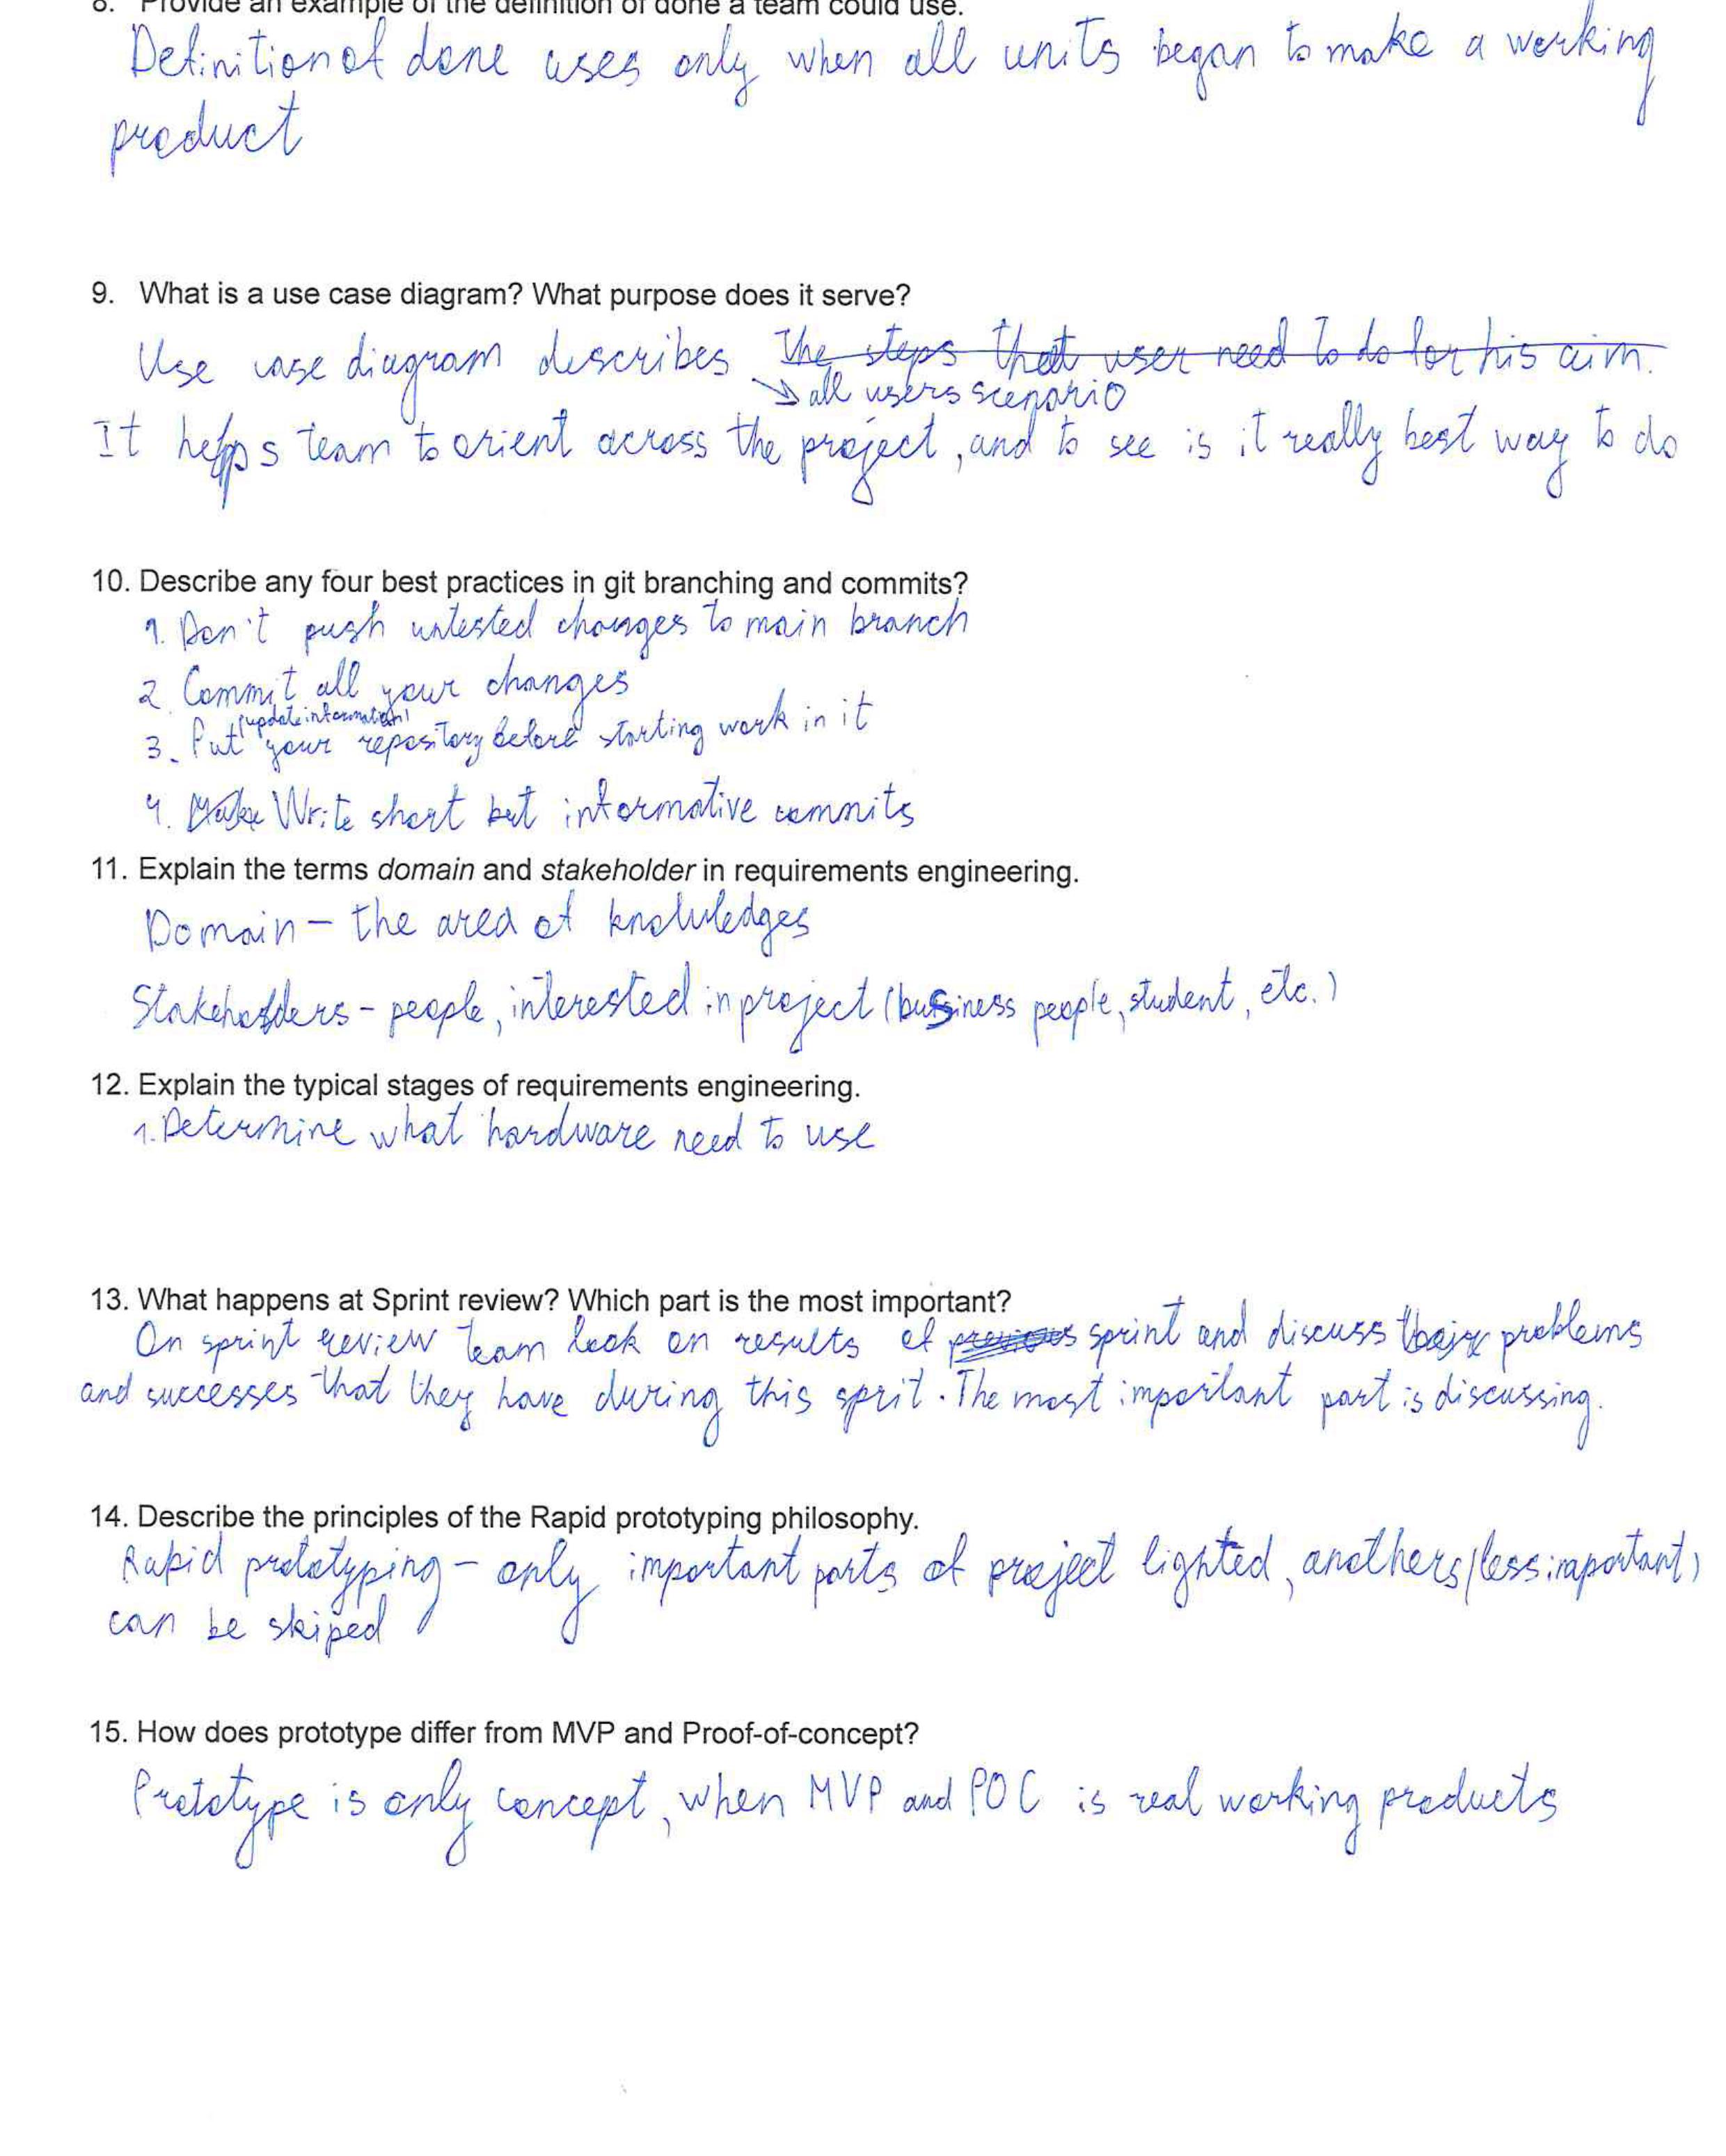 8. Provide an example of the definition of done a team could use.
Definition of done uses only when all units began to make a working
product
9. What is a use case diagram? What purpose does it serve?
Use case diagram describes the steps that user need to do for his aim.
all users scenario
It helps team to orient across the project, and to see is it really best way to do
10. Describe any four best practices in git branching and commits?
1. Don't push untested changes to main branch
2. Commit all your changes
(update information)
3. Put your repository before starting work in it
4. Make Write short but informative commits
11. Explain the terms domain and stakeholder in requirements engineering.
Domain - the area of knowledges
Stakeholders - people, interested in project (business people, student, etc.)
12. Explain the typical stages of requirements engineering.
1. Determine what hardware need to use
13. What happens at Sprint review? Which part is the most important?
On sprint review team look on results of previous sprint and discuss their problems
and successes that they have during this sprit. The most important part is discussing.
14. Describe the principles of the Rapid prototyping philosophy.
Rapid prototyping - only important parts of project lighted, anothers (less important)
can be skiped
15. How does prototype differ from MVP and Proof-of-concept?
Prototype is only concept, when MVP and POC is real working products